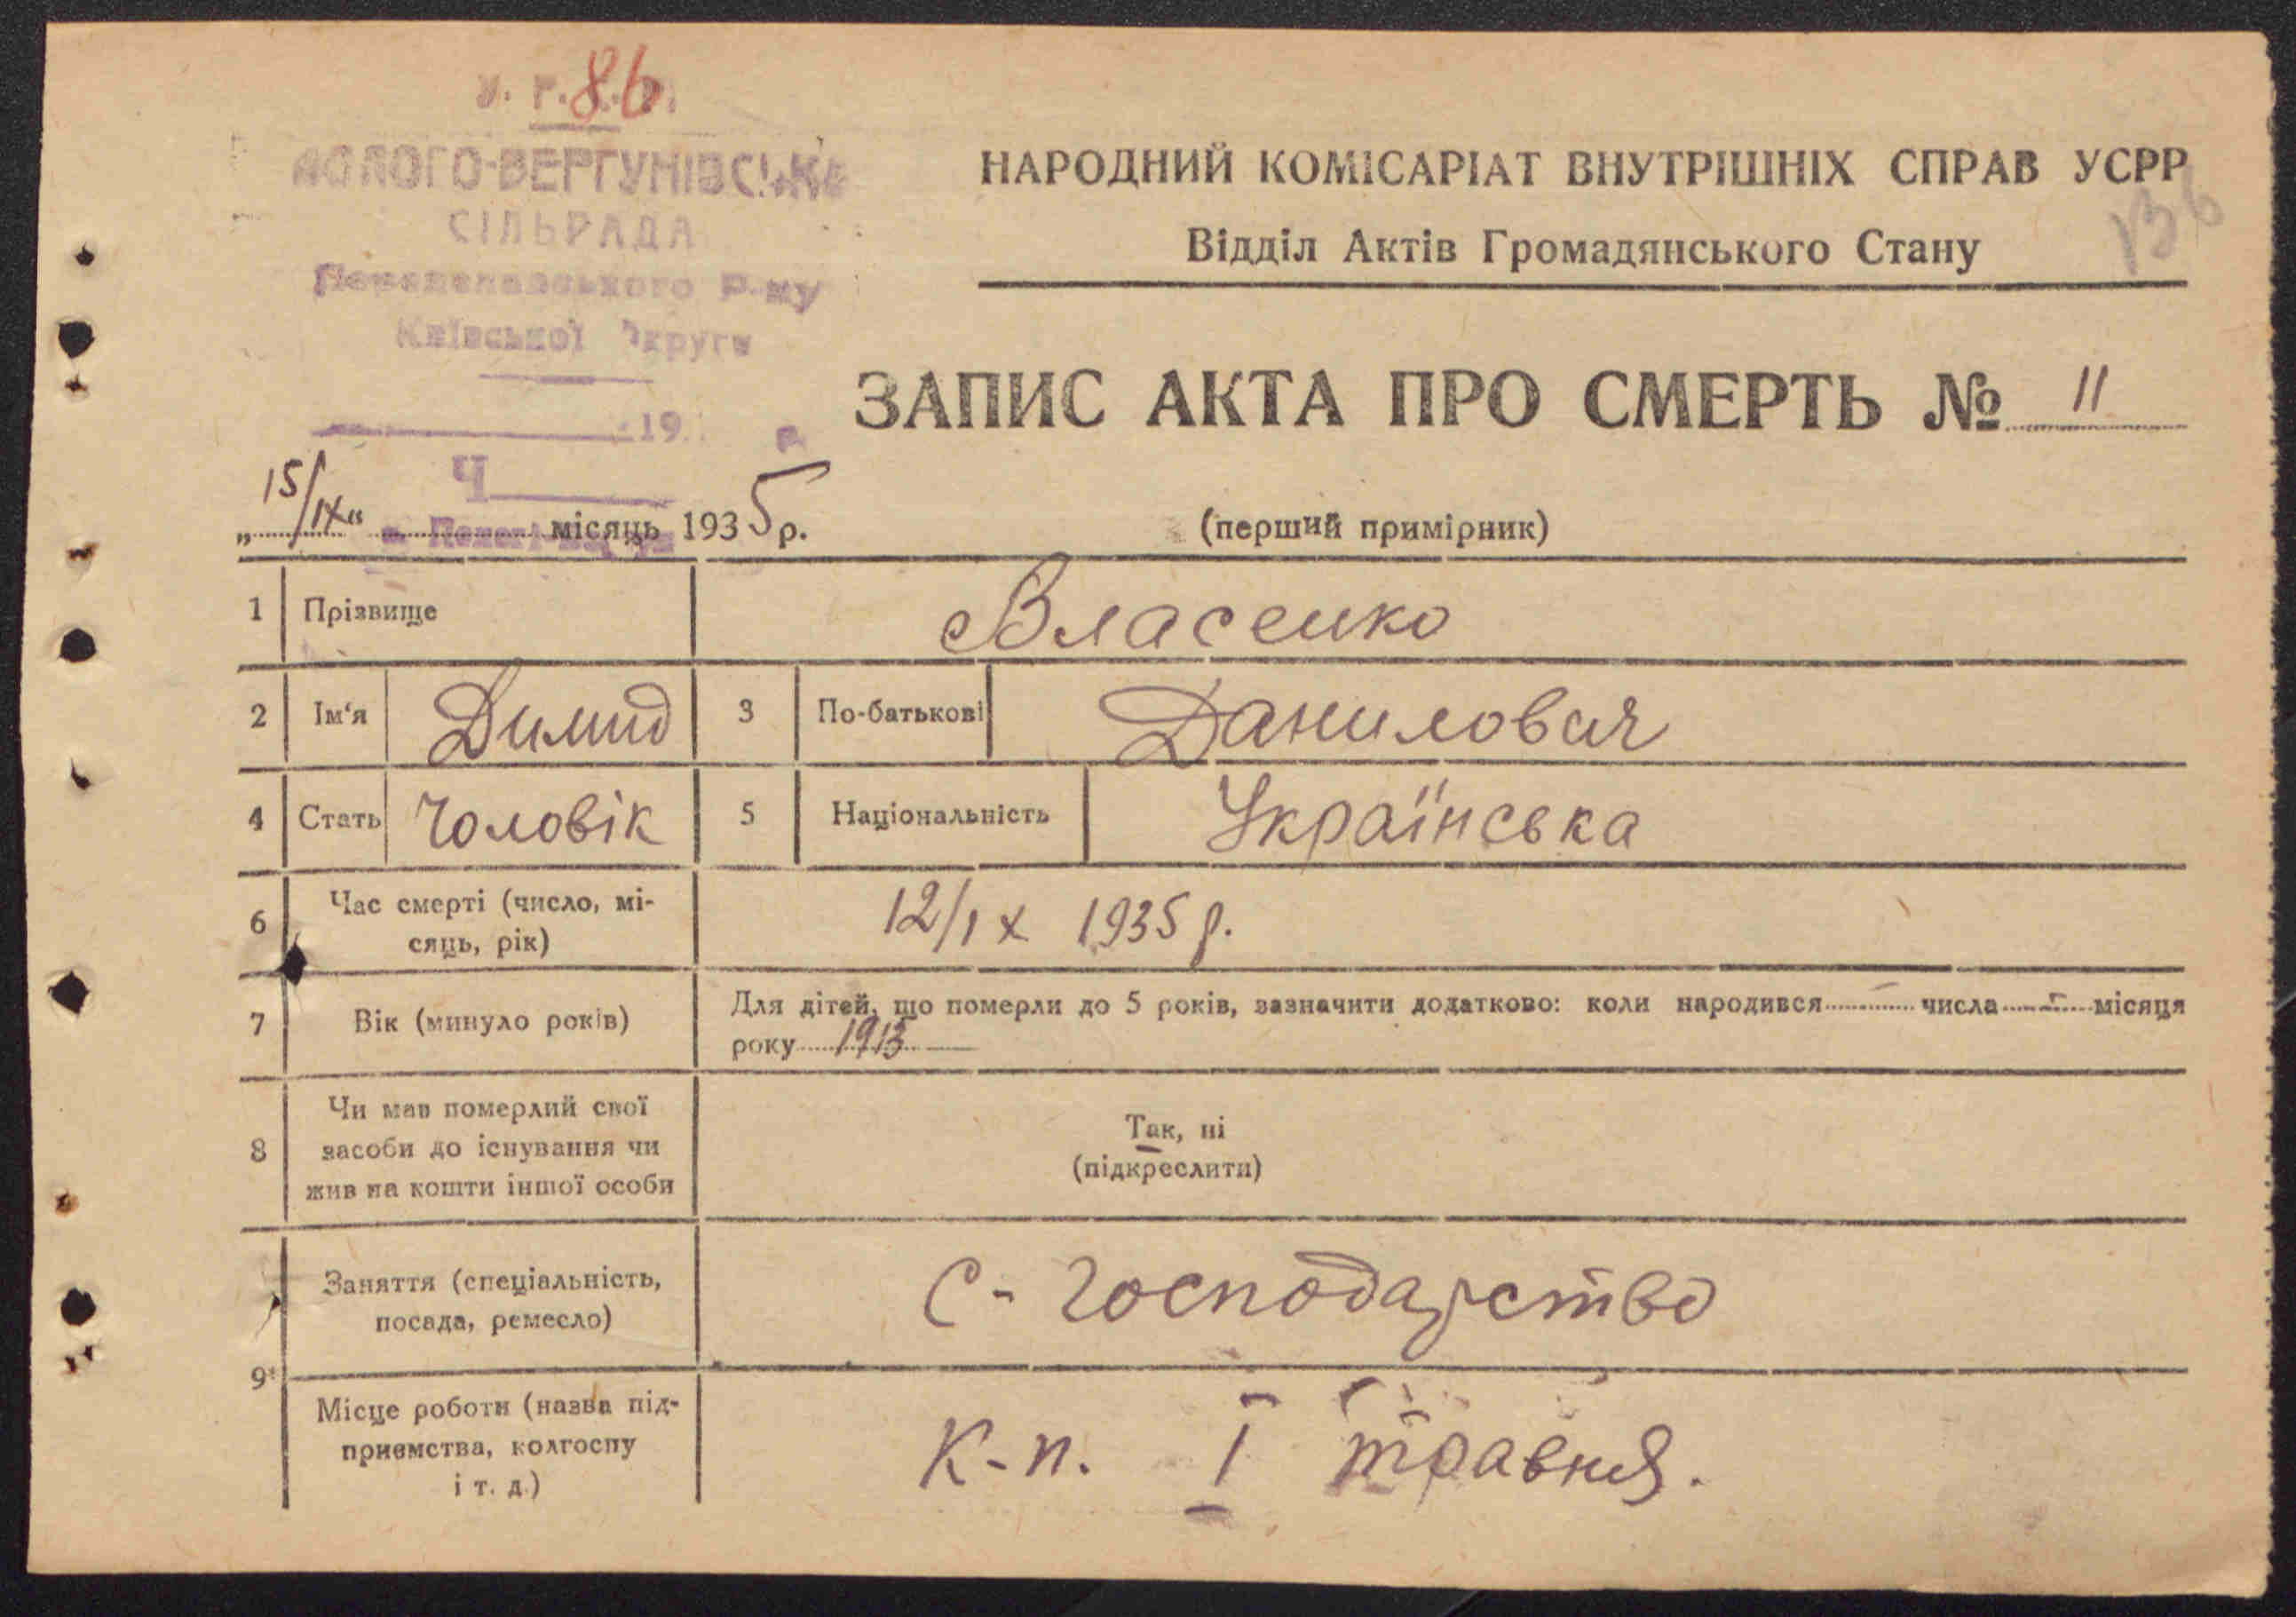 У. Р. 86
ПОЛОГО-ВЕРГУНІВСЬКА
СІЛЬРАДА
НАРОДНИЙ КОМІСАРІАТ ВНУТРІШНІХ СПРАВ УСРР
136
Відділ Актів Громадянського Стану
Переяславського Р-ну
Київської Округи
ЗАПИС АКТА ПРО СМЕРТЬ № 11
19
Ч
„15/IX“ місяць 1935 р.
(перший примірник)
1 Прізвище Власенко
2 Ім‘я Димид 3 По-батькові Данилович
4 Стать Чоловік 5 Національність Українська
6 Час смерті (число, мі-
сяць, рік) 12/IX 1935 р.
7 Вік (минуло років) Для дітей, що померли до 5 років, зазначити додатково: коли народився - числа - місяця
року 1913
8 Чи мав померлий свої
засоби до існування чи
жив на кошти іншої особи
Так, ні
(підкреслити)
9 Заняття (спеціальність,
посада, ремесло) С-господарство
Місце роботи (назва під-
приємства, колгоспу
і т. д.) К-п. І травня.